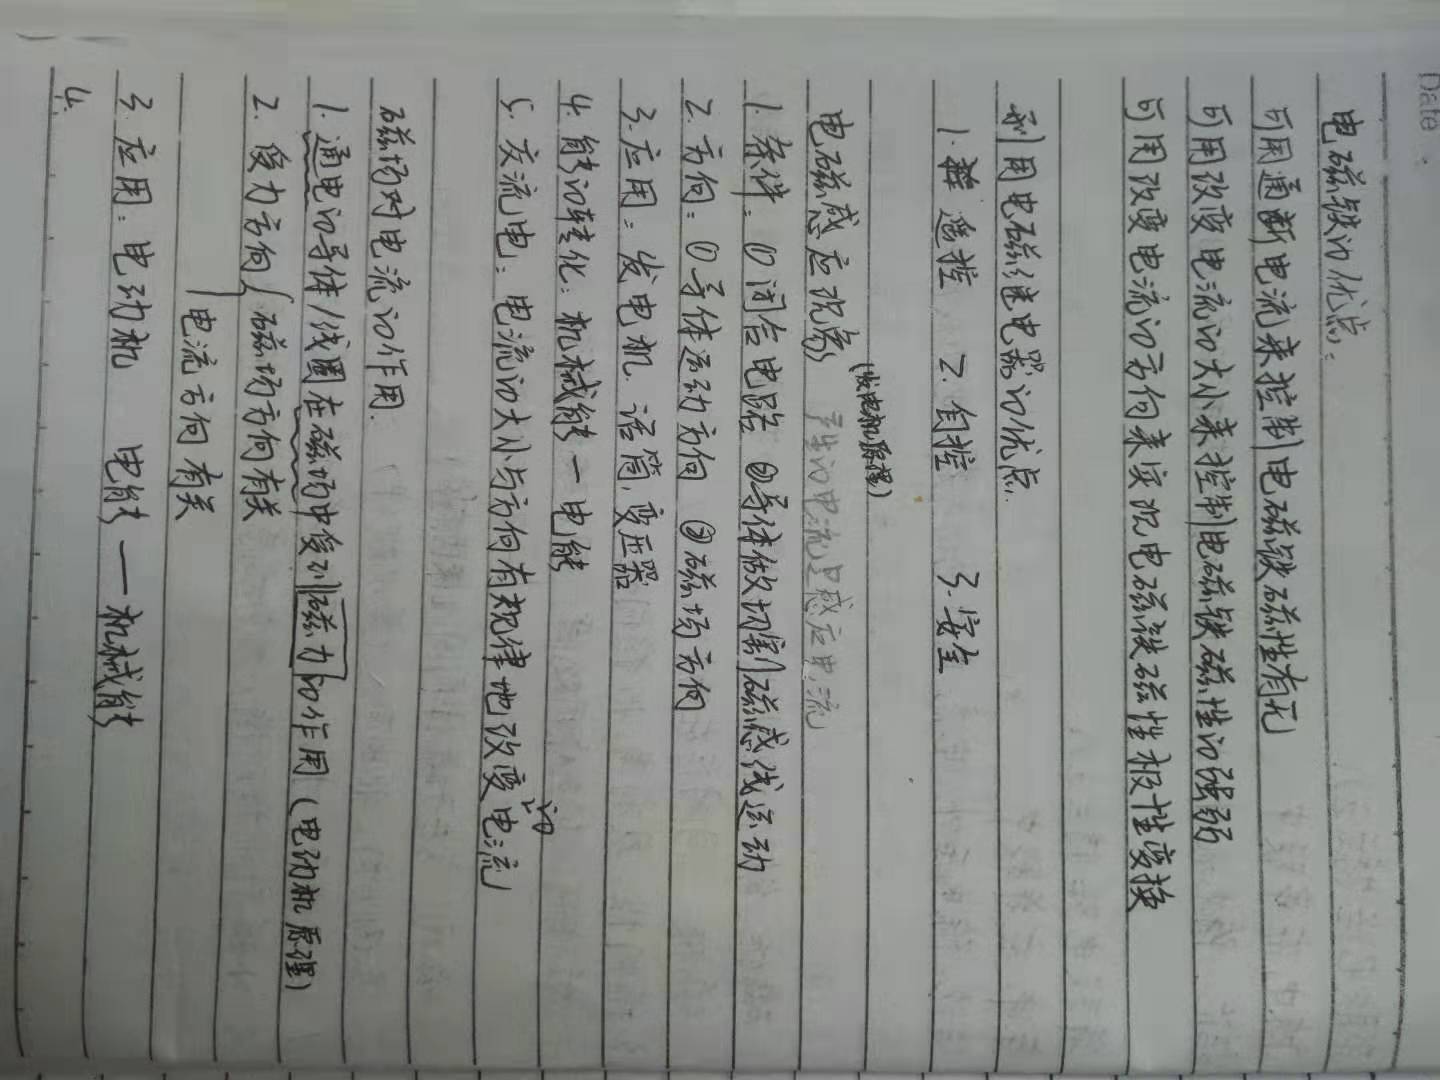 Date
电磁铁的优点:
可用通断电流来控制电磁铁磁性有无
可用改变电流的大小来控制电磁铁磁性的强弱
可用改变电流的方向来实现电磁铁磁性极性变换
利用电磁继电器的优点.
1. 遥控 2. 自控 3. 安全
(发电机原理)
电磁感应现象 产生的电流是感应电流
1. 条件: ①闭合电路 ②导体做切割磁感线运动
2. 方向: ①导体运动方向 ②磁场方向
3. 应用: 发电机. 话筒, 变压器
4. 能的转化: 机械能—电能
5. 交流电: 电流的大小与方向有规律地改变的电流
磁场对电流的作用.
1. 通电的导体/线圈在磁场中受到磁力的作用 (电动机原理)
2. 受力方向 磁场方向有关
电流方向有关
3. 应用: 电动机 电能—机械能
4.